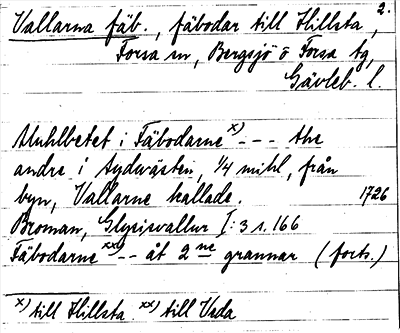 2.
Vallarna fäb., fäbodar till Hillsta,
Forsa sn, Bergsjö o Forsa tg,
Gävleb. l.
Muhlbetet i Fäbodarne x) - - - the
andre i sydwästen, 1/4 mihl, från
byn, Vallarne kallade. 1726
Broman, Glysisvallur I: 3 s. 166
Fäbodarne xx) - - åt 2 ne grannar (forts.)
x) till Hillsta. xx) till Veda